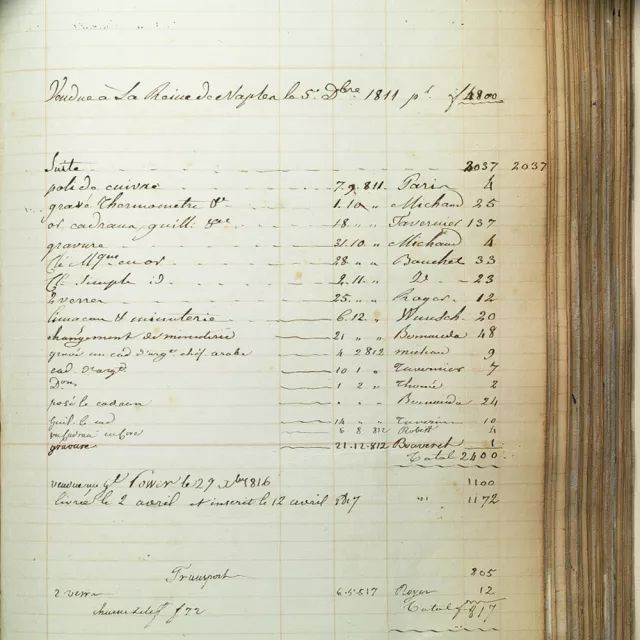 Vendue à La Reine de Naples le 5. Dbre 1811 pr f 4800
Suite 2037 2037
poli de cuivre 7.9.811. Paris 4
gravé thermomètre &c 1.10 " Michaud 25
or cadraux, guill. &c 18. " " Tavernier 137
gravure 31.10 " Michaud 4
Clé Mque en or 28 " " Bouchet 33
Cl. Simple id. 2.11. " Do 23
2 verres 25. " " Roger 12
limacon & minuterie 6.12. " Wunsch 20
changement de minuterie 21 " " Bermuda 48
gravé un cad d'argt chif arabe 4 2 812 michau 9
cad. d'argt 10 1 " Tavernier 7
Dom 1 2 " Thomé 2
posé le cadran " " " Bermuda 24
Guil. le cad 14 " " Tavernier 10
6 8 812 Robert 4
gravure 21.12.812 Boaveret 1
Total 2400
le 29 Xbre 1816 1100
livrée le 2 avril et inscrit le 12 avril 1817 " 1172
Transport 805
2 verres 6.5.817 Royer 12
f 72 Total f 817